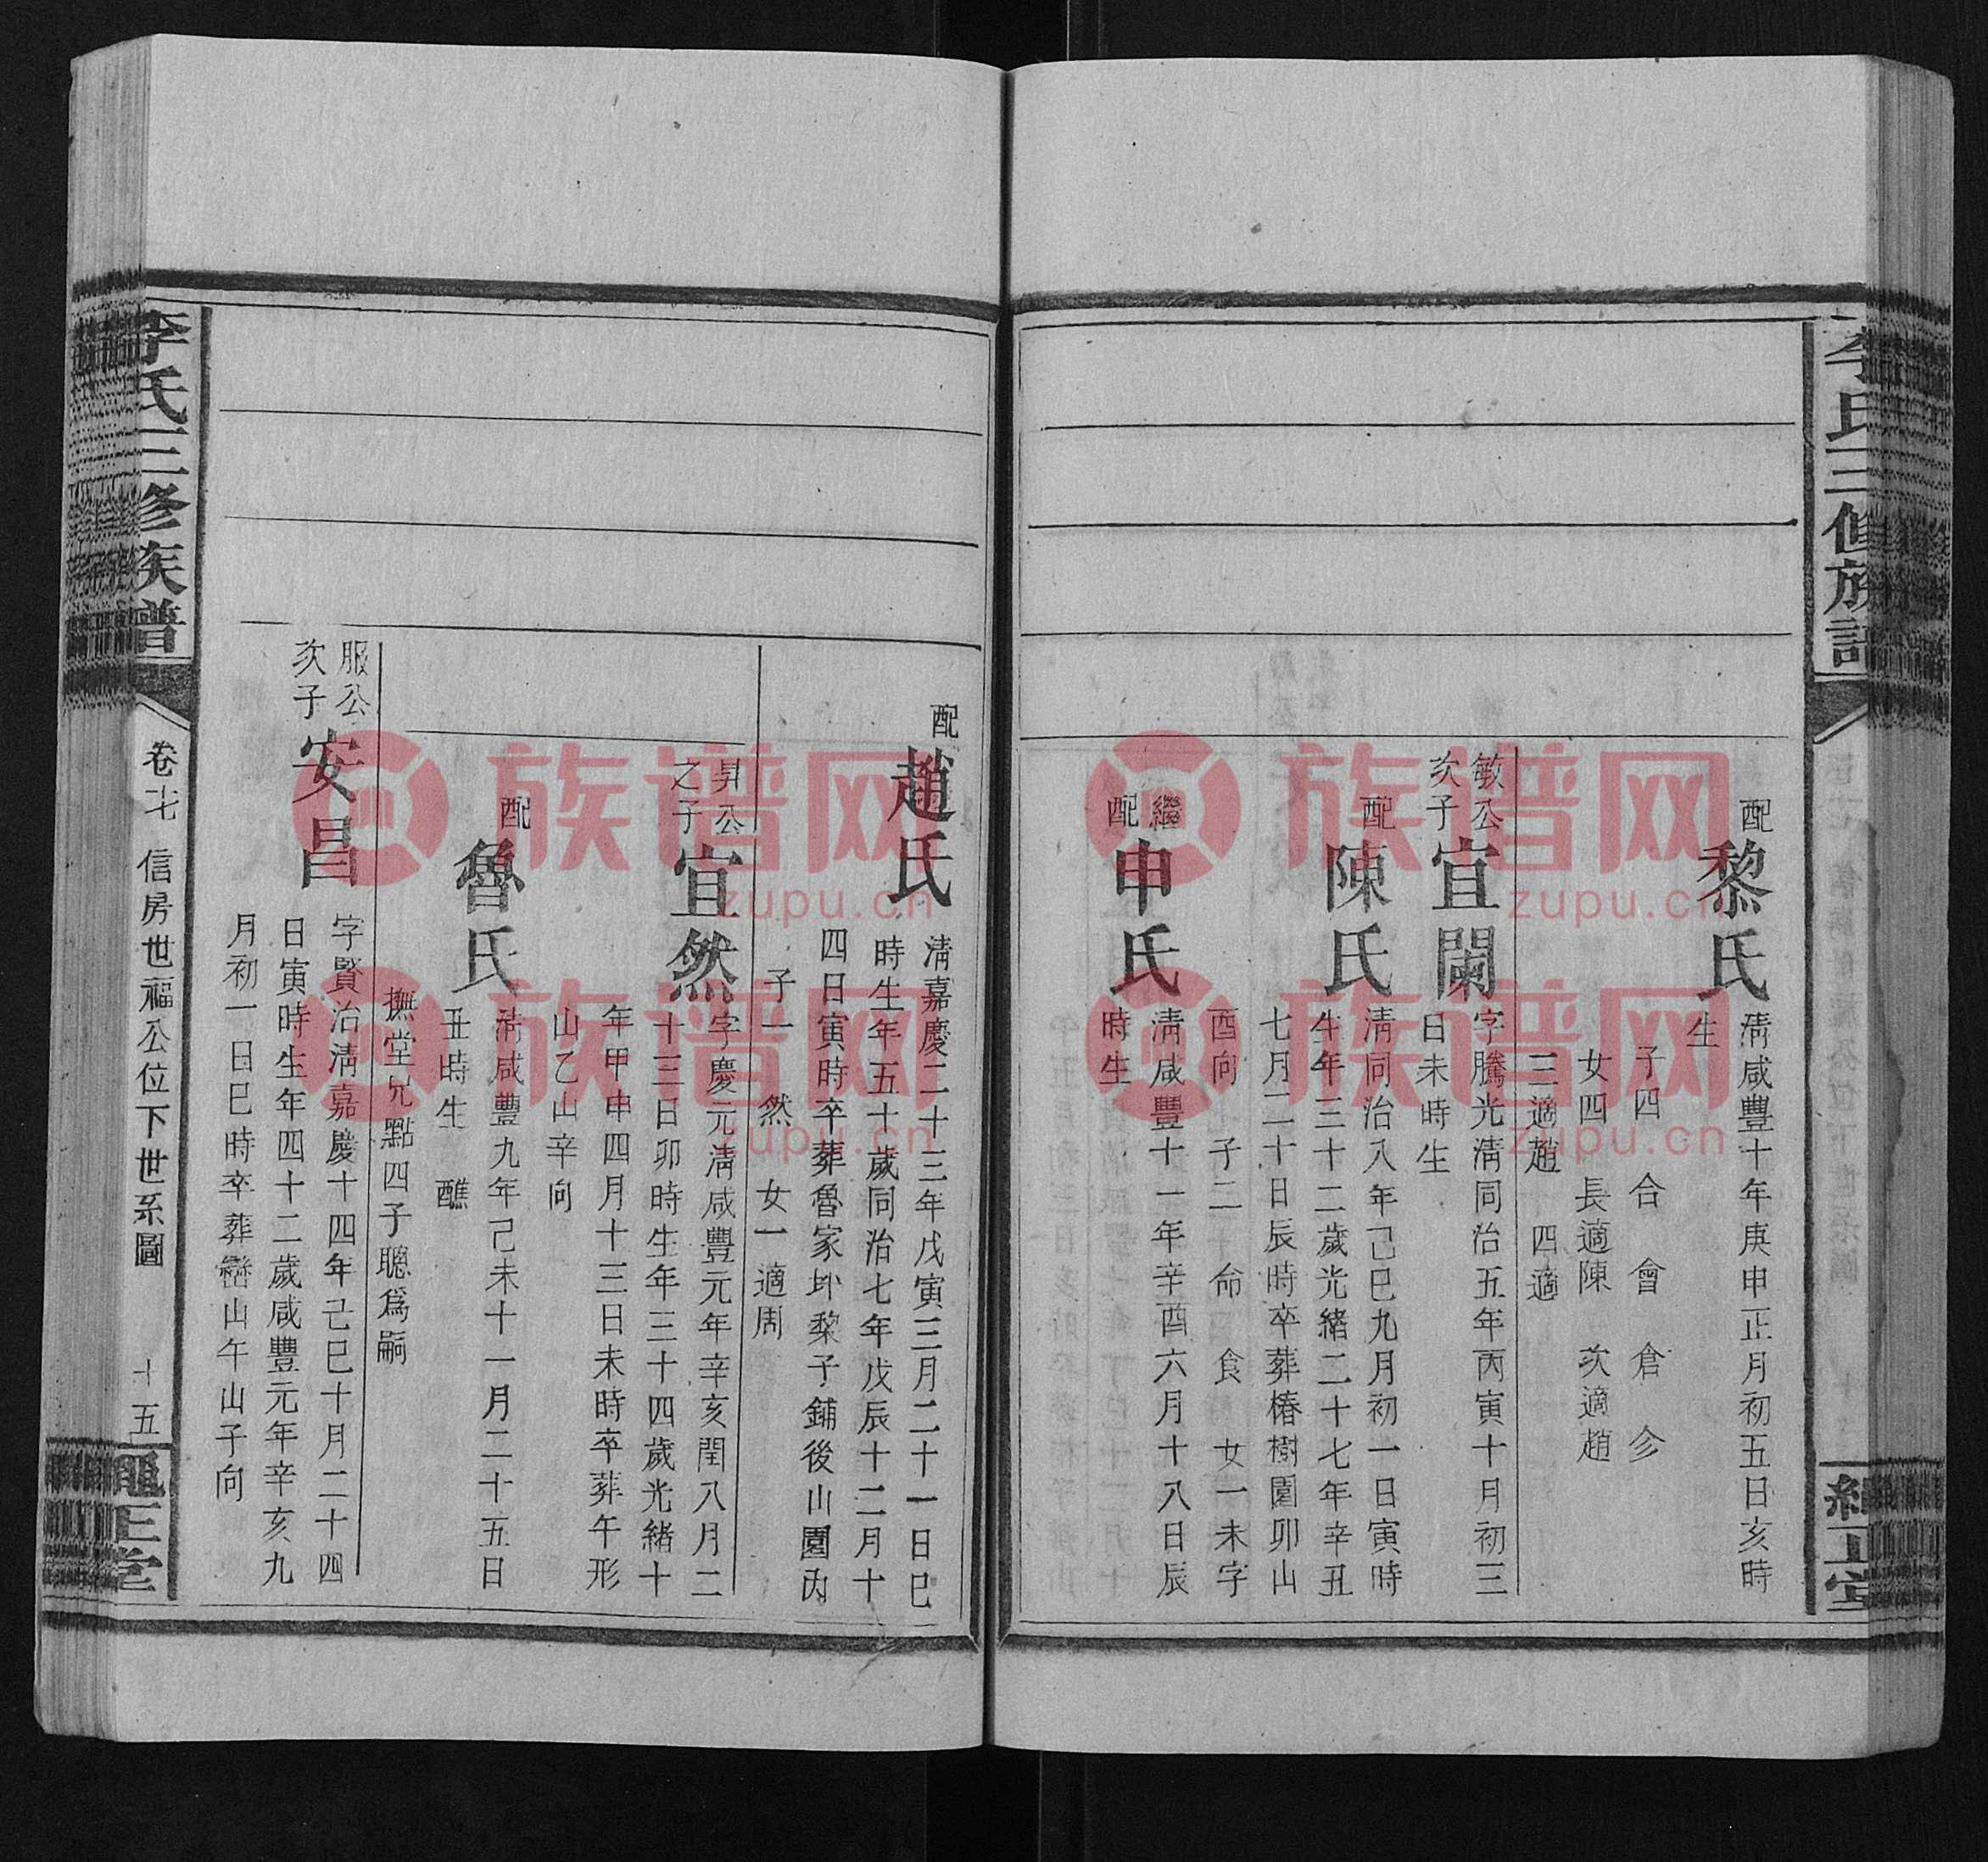 李氏三修族譜
經正堂
配
黎氏
清咸豐十年庚申正月初五日亥時
生
子四 合 會 倉 㑹
女四 長適陳 次適趙
三適趙 四適
敏公
次子
宜闌
字騰光清同治五年丙寅十月初三
日未時生
配
陳氏
清同治八年己巳九月初一日寅時
生年三十二歲光緒二十七年辛丑
七月二十日辰時卒葬椿樹園卯山
酉向 子二 命 食 女一未字
繼
配
申氏
清咸豐十一年辛酉六月十八日辰
時生
配
趙氏
清嘉慶二十三年戊寅三月二十一日巳
時生年五十歲同治七年戊辰十二月十
四日寅時卒葬魯家㘰黎子鋪後山園內
子一 然 女一適周
昇公
之子
宜然
字慶元清咸豐元年辛亥閏八月二
十三日卯時生年三十四歲光緒十
年甲申四月十三日未時卒葬午形
山乙山辛向
配
魯氏
清咸豐九年己未十一月二十五日
丑時生 醮
撫堂兄點四子聰爲嗣
服公
次子
安昌
字賢治清嘉慶十四年己巳十月二十四
日寅時生年四十二歲咸豐元年辛亥九
月初一日巳時卒葬巒山午山子向
李氏三修族譜
卷十 信房世福公位下世系圖
十五
經正堂
族谱网
zupu.cn
族谱网
zupu.cn
族谱网
zupu.cn
族谱网
zupu.cn